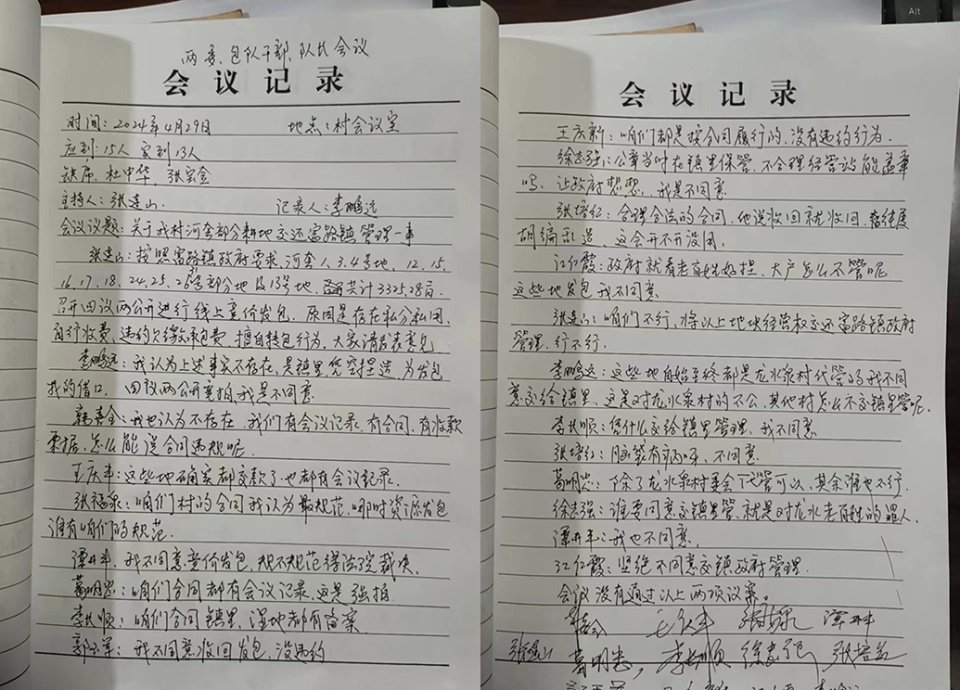 两委、包队干部、队长会议
会议记录
时间：2024年4月29日 地点：村会议室
应到：15人 实到13人
缺席：杜中华，张宝金
主持人：张连山 记录人：李鹏远
会议议题：关于我村河套部分耕地交还富路镇管理一事
张连山：按照富路镇政府要求，河套1、3.4号地，12，15，
16，17，18，24，25，26号部分地及13号地，共计3325.28亩
召开四议两公开进行线上竞价发包，原因是存在私分私团，
自行收费，违约欠缴承包费，擅自转包行为，大家请发表意见
李鹏远：我认为上述事实不存在，是镇里凭空捏造，为发包
找的借口。四议两公开竞拍，我是不同意
：我也认为不存在，我们有会议记录，有合同，有收款
票据，怎么能说合同违规呢
王庆丰：这些地确实都交款了，也都有会议记录。
张福录：咱们村的合同我认为最规范，哪时资源发包
谁有咱们的规范
谭井丰：我不同意竞价发包，规不规范得法院裁决。
葛明忠：咱们合同都有会议记录，这是强拍
李长顺：咱们合同镇里、湿地都有备案
郭军：我不同意收回发包，没违约
会议记录
王庆新：咱们都是按合同履行的，没有违约行为。
徐志强：公章当时在镇里保管，不合理经管站能盖章
吗，让政府想想，我是不同意
张培红：合理合法的合同，他说收回就收回，纯属
胡编乱造，这会开不开没用。
江红霞：政府就看老百姓好捏，大户怎么不管呢
这些地发包我不同意
张连山：咱们不行，将以上地块经营权交还富路镇政府
管理，行不行。
李鹏远：这些地自始至终都是龙水泉村代管的我不同
意交给镇里，这是对龙水泉村的不公，其他村怎么不交镇里管呢。
李长顺：凭什么交给镇里管理，我不同意
张培红：脑袋有病呀，不同意
葛明忠：除了龙水泉村委会代管可以，其余谁也不行。
徐志强：谁要同意交镇里管，就是对龙水老百姓的罪人
谭井丰：我也不同意，
江红霞：坚绝不同意交镇政府管理
会议没有通过以上两项议案。
王庆丰 谭井丰
张连山 葛明忠，李长顺 徐志强 张培红